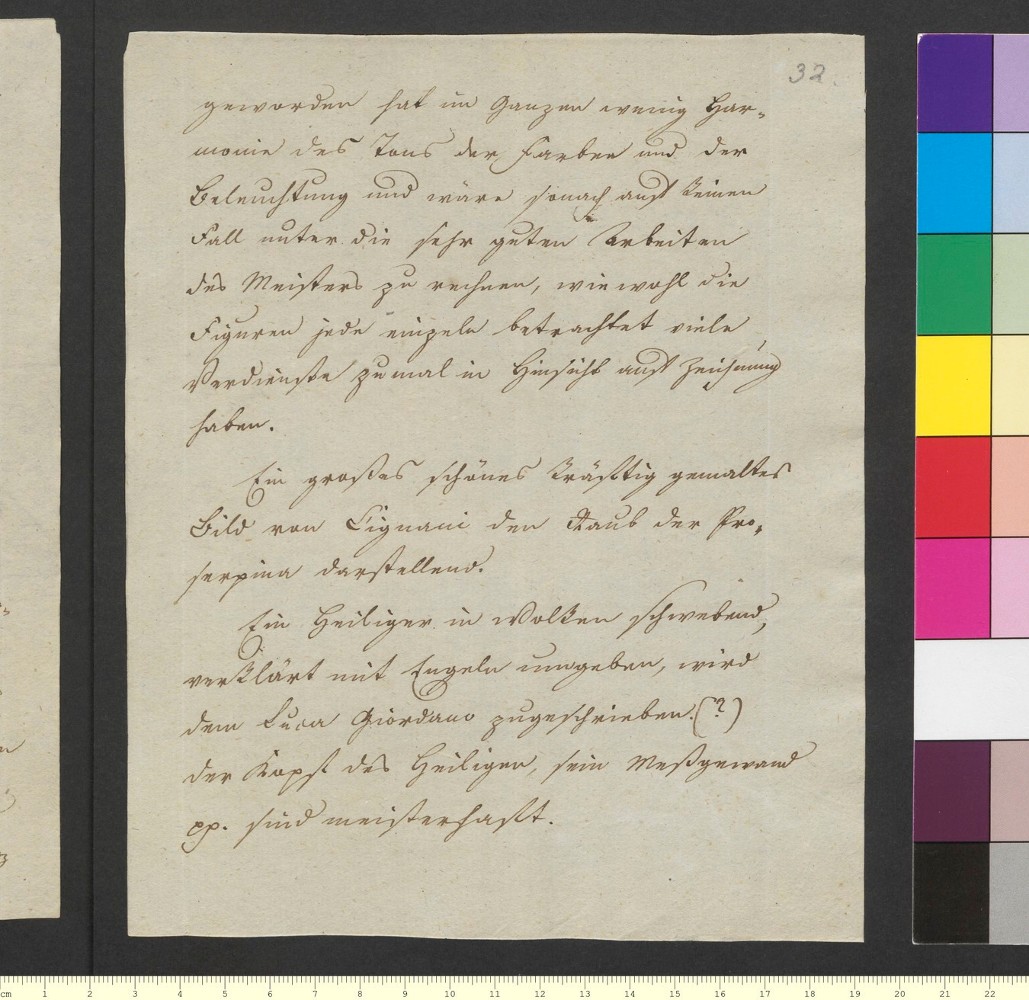 32.
geworden hat im Ganzen wenig Har-
monie des Tons der Farben und der
Beleuchtung und wäre sonach auf keinen
Fall unter die sehr guten Arbeiten
des Meisters zu rechnen, wiewohl die
Figuren jede einzeln betrachtet viele
Verdienste zumal in Hinsicht auf Zeichnung
haben.
Ein großes schönes kräftig gemaltes
Bild von Cignani den Raub der Pro-
serpina darstellend.
Ein Heiliger in Wolken schwebend,
verklärt mit Engeln umgeben, wird
dem Luca Giordano zugeschrieben. (?)
der Kopf des Heiligen, sein Meßgewand
pp. sind meisterhaft.
cm 1 2 3 4 5 6 7 8 9 10 11 12 13 14 15 16 17 18 19 20 21 22